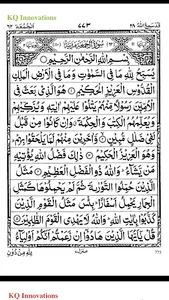 KQ Innovations
قَدْ سَمِعَ اللّٰهُ ٢٨
٧٧٣
الْجُمُعَة ٦٢
سُوْرَةُ الْجُمُعَةِ مَدَنِيَّةٌ
بِسْمِ اللّٰهِ الرَّحْمٰنِ الرَّحِيْمِ
يُسَبِّحُ لِلّٰهِ مَا فِي السَّمٰوٰتِ وَمَا فِي الْاَرْضِ الْمَلِكِ
الْقُدُّوْسِ الْعَزِيْزِ الْحَكِيْمِ هُوَ الَّذِيْ بَعَثَ فِي
الْاُمِّيّٖنَ رَسُوْلًا مِّنْهُمْ يَتْلُوْا عَلَيْهِمْ اٰيٰتِهٖ وَيُزَكِّيْهِمْ
وَيُعَلِّمُهُمُ الْكِتٰبَ وَالْحِكْمَةَ وَاِنْ كَانُوْا مِنْ قَبْلُ
لَفِيْ ضَلٰلٍ مُّبِيْنٍ وَّاٰخَرِيْنَ مِنْهُمْ لَمَّا يَلْحَقُوْا بِهِمْ
وَهُوَ الْعَزِيْزُ الْحَكِيْمُ ذٰلِكَ فَضْلُ اللّٰهِ يُؤْتِيْهِ
مَنْ يَّشَآءُ وَاللّٰهُ ذُو الْفَضْلِ الْعَظِيْمِ مَثَلُ
الَّذِيْنَ حُمِّلُوا التَّوْرٰىةَ ثُمَّ لَمْ يَحْمِلُوْهَا كَمَثَلِ
الْحِمَارِ يَحْمِلُ اَسْفَارًا بِئْسَ مَثَلُ الْقَوْمِ الَّذِيْنَ
كَذَّبُوْا بِاٰيٰتِ اللّٰهِ وَاللّٰهُ لَا يَهْدِي الْقَوْمَ الظّٰلِمِيْنَ
قُلْ يٰۤاَيُّهَا الَّذِيْنَ هَادُوْۤا اِنْ زَعَمْتُمْ اَنَّكُمْ اَوْلِيَآءُ
لِلّٰهِ مِنْ دُوْنِ
KQ Innovations